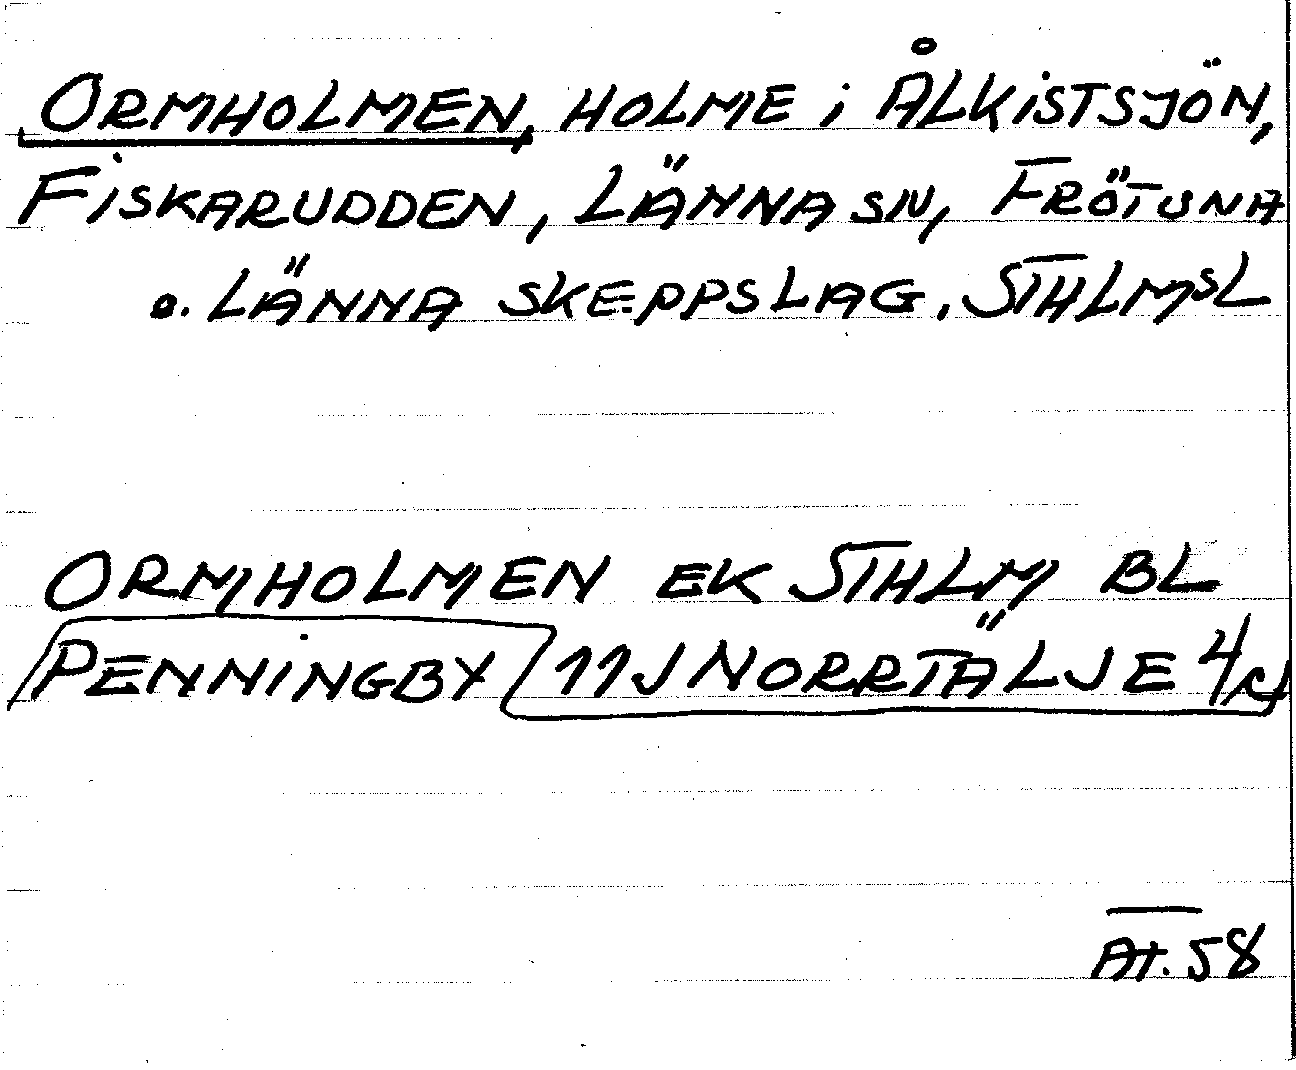 ORMHOLMEN, HOLME i ÅLKiSTSJÖN,
FiSKARUDDEN, LÄNNA SN, FRÖTUNA
o. LÄNNA SKEPPSLAG, STHLMSL
ORMHOLMEN EK STHLM BL
PENNiNGBY 11J NORRTÄLJE 4/d
At. 58